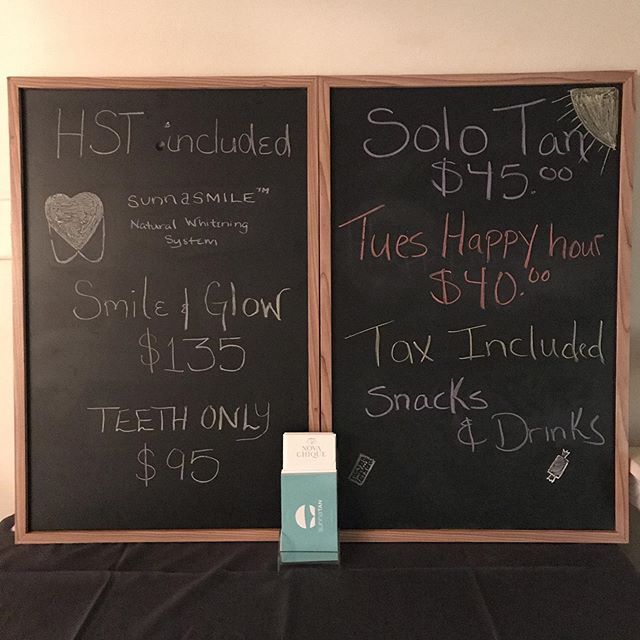 HST included
sunnaSMILE™
Natural Whitening
System
Smile & Glow
$135
TEETH ONLY
$95
Solo Tan
$45.00
Tues Happy hour
$40.00
Tax Included
Snacks
& Drinks
NOVA
CHIQUE
SUNNATAN